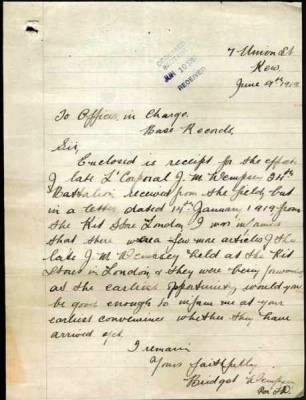 7 Union St
Kew.
June 9th 1919
JUN 10 1919
RECEIVED
To Officer in Charge.
Base Records
Sir,
Enclosed is receipt for the effects
of late L/Corporal J. M. Dempsey 34th
Battalion received from the field, but
in a letter dated 14th January 1919 from
the Kit Store London, I was informed
that there were a few more articles of the
late J. M. Dempsey held at the Kit
Store in London, & they were being forwarded
at the earliest opportunity, would you
be good enough to inform me at your
earliest convenience whether they have
arrived yet
I remain
Yours faithfully
Bridget Dempsey